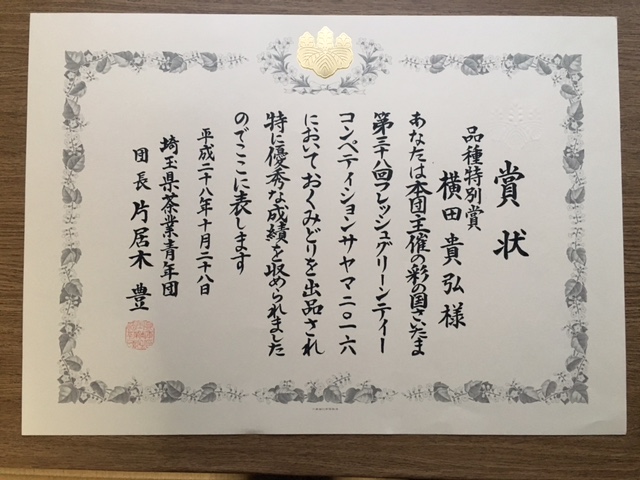 賞状
品種特別賞
横田貴弘様
あなたは本団主催の彩の国さいたま
第三十八回フレッシュグリーンティー
コンペティションサヤマ二〇一六
においておくみどりを出品され
特に優秀な成績を収められました
のでここに表します
平成二十八年十月二十八日
埼玉県茶業青年団
団長 片居木 豊